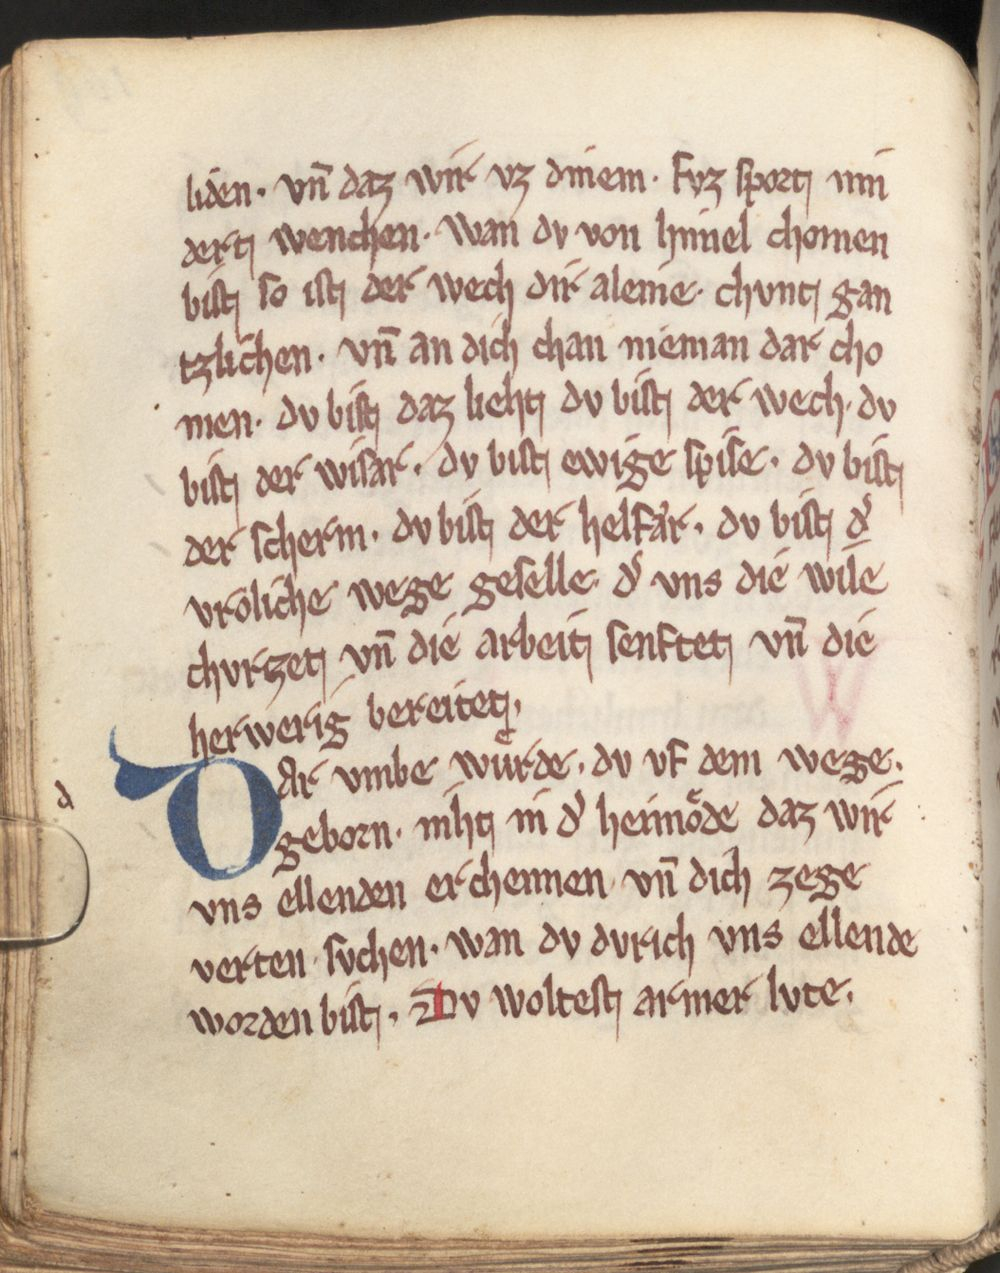 liden. vn̄ daz wir vz dinem. fvz sport nim
dert wenchen. wan dv von himel chomen
bist so ist der wech dir aleine. chvnt gan
tzlichen. vn̄ an dich chan nieman dar cho
men. dv bist daz lieht dv bist der wech. dv
bist der wisar. dv bist ewige spise. dv bist
der scherm. dv bist der helfar. dv bist d͛
vröliche wege geselle. d͛ vns die wile
chvrzet vn̄ die arbeit senftet vn̄ die
herwerig bereitet.
DAr vmbe wuͤrde. dv vf dem wege.
geborn. niht in d͛ heimoͤde daz wir
vns ellenden erchennen vn̄ dich zege
verten svchen. wan dv dvrich vns ellende
worden bist. Dv woltest armer lvte.
d